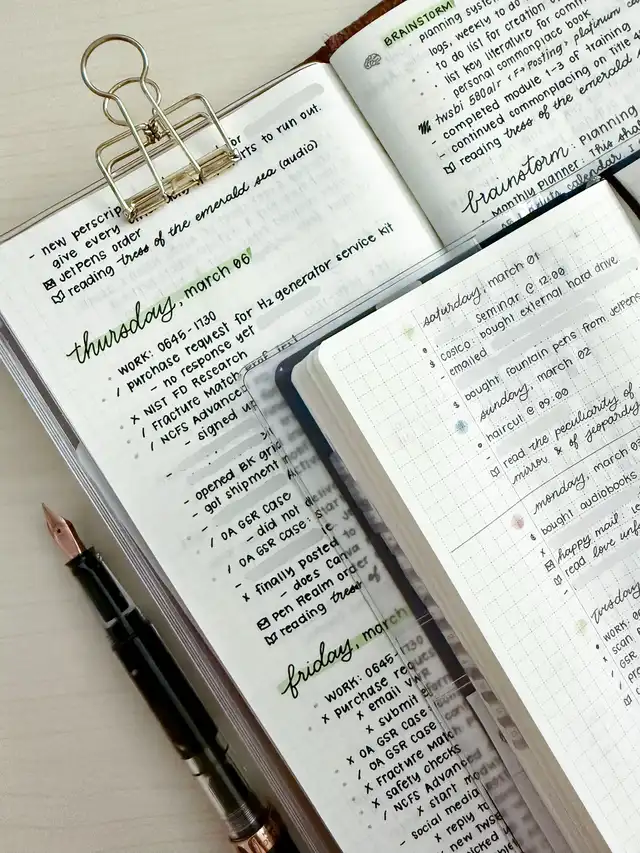 - new perscrip
rts to run out.
give every
JetPens order
reading tress of the emerald sea (audio)
thursday, march 06
WORK: 0645-1730
/ purchase request for H2 generator service kit
- no response yet
x NIST FD Research
/ Fracture Match
/ NCFS Advance
- signed up
- opened BK grid
- got shipment
/ OA GSR Case
- did not
/ OA GSR Case:
x finally posted to
- does Canva
Pen Realm order
reading tress of
friday, march
WORK: 0645-1730
x purchase reques
x email VWR
x submit
x OA GSR Case
/ OA GSR Case
x Fracture Match
x safety checks
/ NCFS Advanced
x start modu
- social media
x reply to
new TWSB
picked
BRAINSTORM
planning system
logs, weekly to do
to do list for creation
list key literature for comm
personal commonplace book
twsbi 580alr <F> Posting> platinum
- completed module 1-3 of training
- continued commonplacing on Title
reading tress of the emerald s
brainstorm: Planning
monthly planner: This sha
calendar. I
saturday, march 01
seminar @ 12:00
costco - bought external hard drive
- emailed
$ bought fountain pens from JetPens
sunday, march 02
haircut @ 09:00
read the peculiarity of
mirror & of jeopardy
monday, march 03
$ bought audiobooks
x
happy mail:
read love unf
-
tuesday
WORK: 0
x scan
/ GSR
- pr